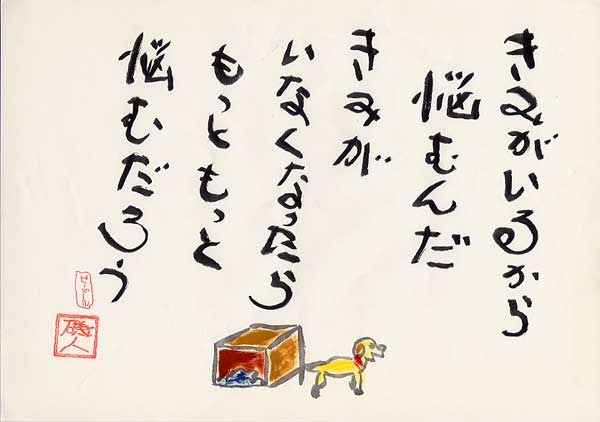 きみがいるから
悩むんだ
きみが
いなくなったら
もっともっと
悩むだろう